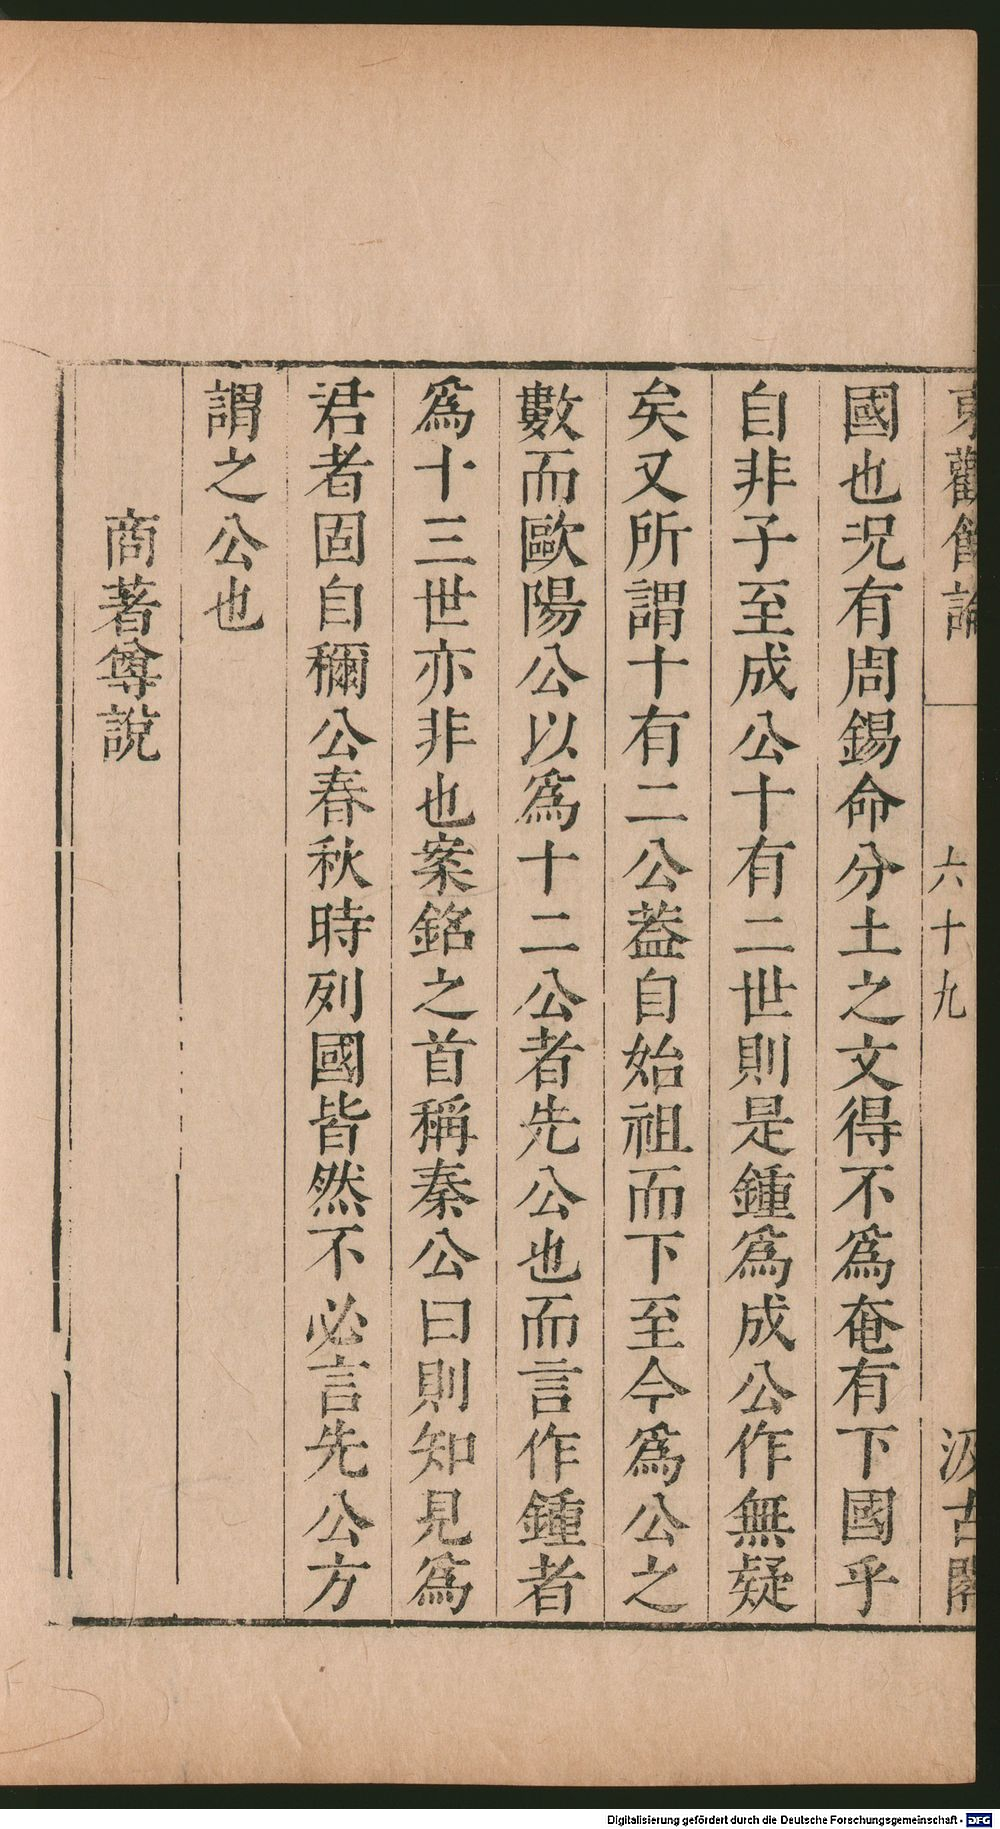 東觀餘論
六十九
汲古閣
國也况有周錫命分土之文得不爲奄有下國乎
自非子至成公十有二世則是鍾爲成公作無疑
矣又所謂十有二公葢自始祖而下至今爲公之
數而歐陽公以爲十二公者先公也而言作鍾者
爲十三世亦非也案銘之首稱秦公曰則知見爲
君者固自稱公春秋時列國皆然不必言先公方
謂之公也
商著尊說
Digitalisierung gefördert durch die Deutsche Forschungsgemeinschaft - DFG